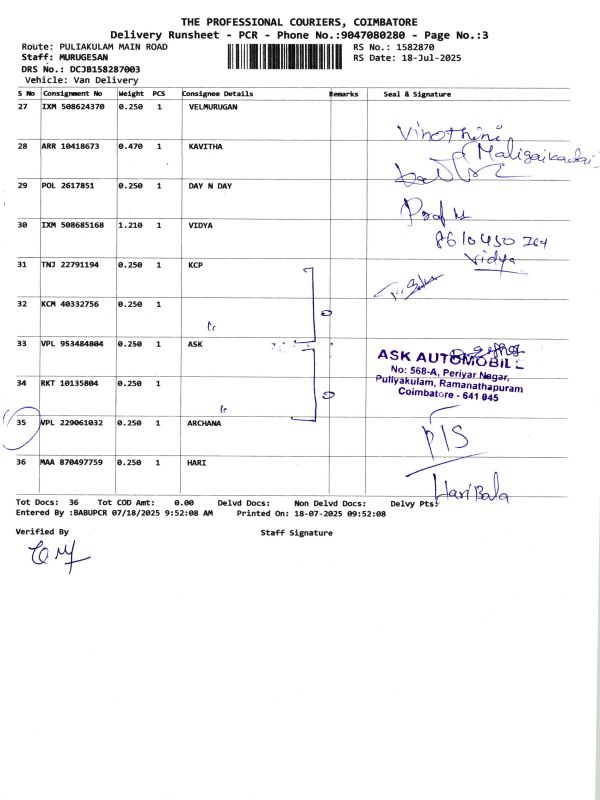 THE PROFESSIONAL COURIERS, COIMBATORE
Delivery Runsheet - PCR - Phone No.:9047080280 - Page No.:3
Route: PULIAKULAM MAIN ROAD RS No.: 1582870
Staff: MURUGESAN RS Date: 18-Jul-2025
DRS No.: DCJB158287003
Vehicle: Van Delivery
S No Consignment No Weight PCS Consignee Details Remarks Seal & Signature
27 IXM 508624370 0.250 1 VELMURUGAN
Vinothini
28 ARR 10418673 0.470 1 KAVITHA
Maligaikadai
29 POL 2617851 0.250 1 DAY N DAY
30 IXM 508685168 1.210 1 VIDYA
Vidya
31 TNJ 22791194 0.250 1 KCP
32 KCM 40332756 0.250 1
33 VPL 953484804 0.250 1 ASK
ASK AUTOMOBILE
No: 568-A, Periyar Nagar,
Puliyakulam, Ramanathapuram
Coimbatore - 641 045
34 RKT 10135804 0.250 1
35 VPL 229061032 0.250 1 ARCHANA
P/S
36 MAA 870497759 0.250 1 HARI
Hari Bala
Tot Docs: 36 Tot COD Amt: 0.00 Delvd Docs: Non Delvd Docs: Delvy Pts:
Entered By :BABUPCR 07/18/2025 9:52:08 AM Printed On: 18-07-2025 09:52:08
Verified By Staff Signature